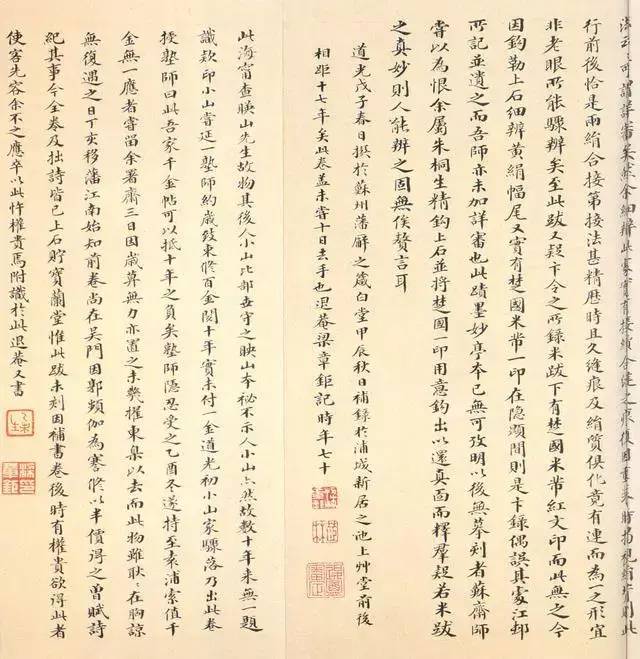 可謂詳審矣然余細辨此摹實有接續合縫之痕復因重來時揭視絹背則此
行前後恰是兩絹合接第接法甚精歷時且久縫痕及絹質俱化竟有連而為一之形宜
非老眼所能驟辨矣至此跋又疑卞令之所錄米跋下有楚國米芾紅文印而此無之今
因鈎勒上石細辨黃絹幅尾又實有楚國米芾一印在隱顯間則是卞錄偶誤其處江邨
所記並遺之而吾師亦未加詳審也此蹟墨妙亭本已無可攷明以後無摹到者蘇齋師
嘗以為恨余屬朱桐生精鈎上石並將楚國一印用意鈎出以還真面而釋羣疑若米跋
之真妙則人能辨之固無俟贅言耳
道光戊子春日撰於蘇州藩廨之箴白堂甲辰秋日補錄於浦城新居之池上艸堂前後
相距十七年矣此卷蓋未嘗十日去手也退庵梁章鉅記時年七十
此海甯查映山先生故物其後人小山比部世守之映山本秘不示人小山亦然故數十年來無一題
識欵印小山嘗延一塾師約歲致束脩百金閱十年實未付一金道光初小山家驟落乃出此卷
授塾師曰此吾家千金帖可以抵十年之負矣塾師隱忍受之乙酉冬遂持至袁浦索值千
金無一應者嘗留余署齋三日因歲莫無力亦置之未幾擢東臬以去而此物雖耿耿在胸諒
無復遇之日丁亥移藩江南始知前卷尚在吳門因郭頻伽為蹇脩以半價得之曾賦詩
紀其事今全卷及拙詩皆已上石貯寶蘭堂惟此跋未刻因補書卷後時有權貴欲得此者
使客先容余不之應卒以此忤權貴焉附識於此退庵又書